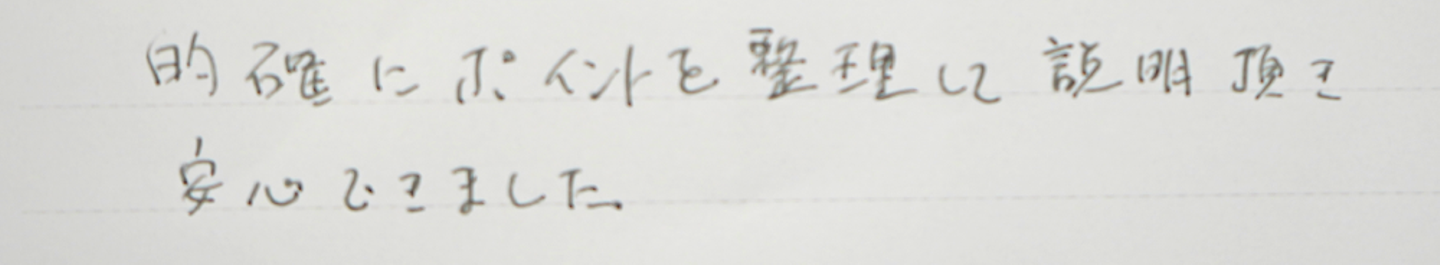 的確にポイントを整理して説明頂き
安心できました。